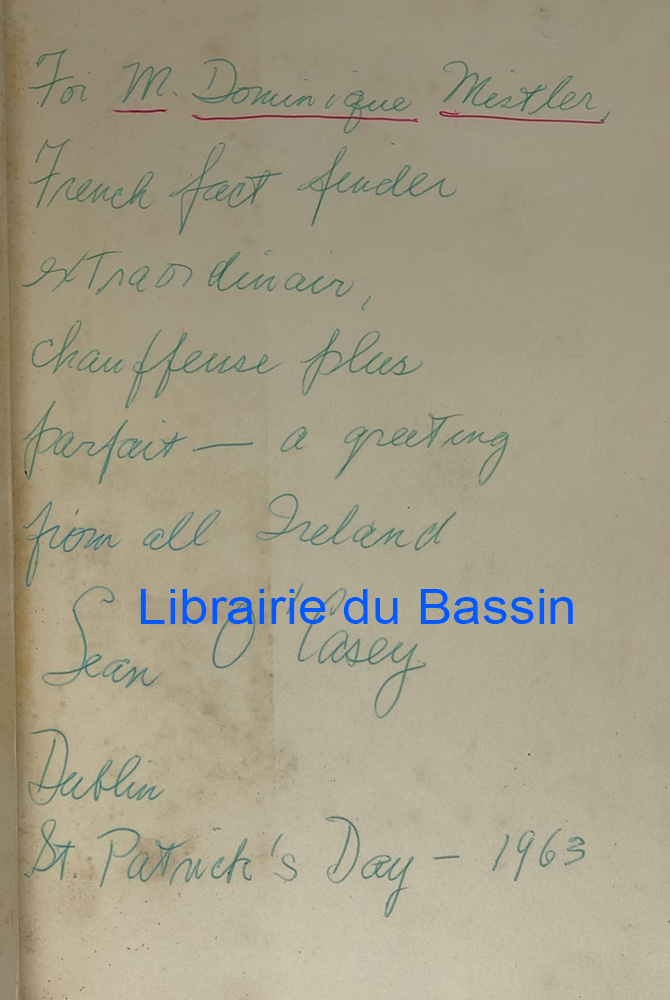 For M. Dominique Mistler,
French fact finder
extraordinair,
chauffeuse plus
parfait — a greeting
from all Ireland
Librairie du Bassin
Sean O'Casey
Dublin
St. Patrick's Day — 1963